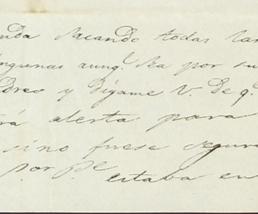 nda sacando todas las
ngunas aunq. sea por su
dreo y Digame V. de q.
rá alerta para
sino fuese segura
por
estaba en